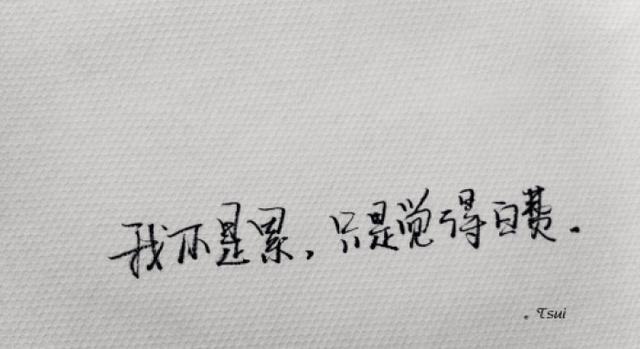 我不是累，只是觉得白费.
。Tsui